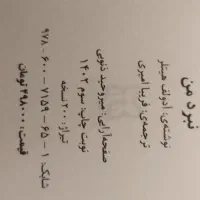 نبرد من
نوشته‌ی: آدولف هیتلر
ترجمه‌ی: فریبا امیری
صفحه‌آرایی: میروحید ذنوبی
نوبت چاپ: سوم ۱۴۰۲
تیراژ: ۲۰۰ نسخه
شابک: ۱ - ۶۵ - ۷۱۵۹ - ۶۰۰ - ۹۷۸
قیمت: ۳۹۸۰۰۰ تومان